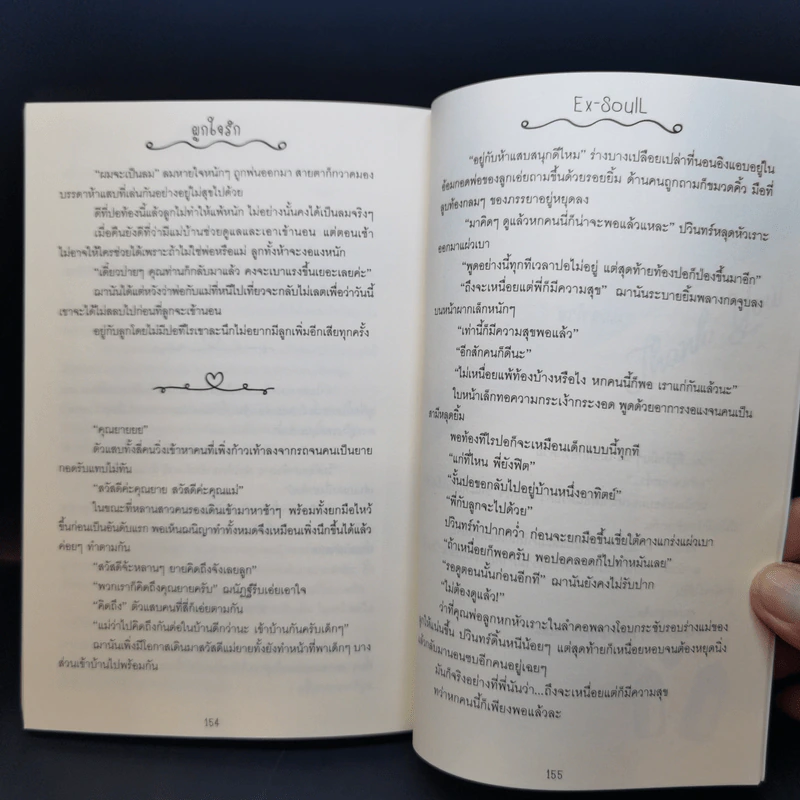 ผูกใจรัก
"ผมจะเป็นลม" ลมหายใจหนักๆ ถูกพ่นออกมา สายตาก็กวาดมอง
บรรดาห้าแสบที่เล่นกันอย่างอยู่ไม่สุขไปด้วย
ดีที่ปอท้องนี้แล้วลูกไม่ทำให้แพ้หนัก ไม่อย่างนั้นคงได้เป็นลมจริงๆ
เมื่อคืนยังดีที่ว่ามีแม่บ้านช่วยดูแลและเอาเข้านอน แต่ตอนเช้า
ไม่อาจให้ใครช่วยได้เพราะถ้าไม่ใช่พ่อหรือแม่ ลูกทั้งห้าจะงอแงหนัก
"เดี๋ยวบ่ายๆ คุณท่านก็กลับมาแล้ว คงจะเบาแรงขึ้นเยอะเลยค่ะ"
ฌานันได้แต่หวังว่าพ่อกับแม่ที่หนีไปเที่ยวจะกลับไม่เลตเพื่อว่าวันนี้
เขาจะได้ไม่สลบไปก่อนที่ลูกจะเข้านอน
อยู่กับลูกโดยไม่มีปอทีไรเขาละนึกไม่อยากมีลูกเพิ่มอีกเสียทุกครั้ง
"คุณยายยย"
ตัวแสบทั้งสี่คนวิ่งเข้าหาคนที่เพิ่งก้าวเท้าลงจากรถจนคนเป็นยาย
กอดรับแทบไม่ทัน
"สวัสดีค่ะคุณยาย สวัสดีค่ะคุณแม่"
ในขณะที่หลานสาวคนรองเดินเข้ามาหาช้าๆ พร้อมทั้งยกมือไหว้
ขึ้นก่อนเป็นอันดับแรก พอเห็นฌณิญาทำทั้งหมดจึงเหมือนเพิ่งนึกขึ้นได้แล้ว
ค่อยๆ ทำตามกัน
"สวัสดีจ้ะหลานๆ ยายคิดถึงจังเลยลูก"
"พวกเราก็คิดถึงคุณยายครับ" ฌณัฏฐ์รีบเอ่ยเอาใจ
"คิดถึง" ตัวแสบคนที่สี่ก็เอ่ยตามกัน
"แม่ว่าไปคิดถึงกันต่อในบ้านดีกว่านะ เข้าบ้านกันครับเด็กๆ"
ฌานันเพิ่งมีโอกาสเดินมาสวัสดีแม่ยายทั้งยังทำหน้าที่พาเด็กๆ บาง
ส่วนเข้าบ้านไปพร้อมกัน
154
Ex-SoulL
"อยู่กับห้าแสบสนุกดีไหม" ร่างบางเปลือยเปล่าที่นอนอิงแอบอยู่ใน
อ้อมกอดพ่อของลูกเอ่ยถามขึ้นด้วยรอยยิ้ม ด้านคนถูกถามก็ขมวดคิ้ว มือที่
ลูบท้องกลมๆ ของภรรยาอยู่หยุดลง
"มาคิดๆ ดูแล้วหกคนนี้ก็น่าจะพอแล้วแหละ" ปวินทร์หลุดหัวเราะ
ออกมาแผ่วเบา
"พูดอย่างนี้ทุกทีเวลาปอไม่อยู่ แต่สุดท้ายท้องปอก็ป่องขึ้นมาอีก"
"ถึงจะเหนื่อยแต่พี่ก็มีความสุข" ฌานันระบายยิ้มพลางกดจูบลง
บนหน้าผากเล็กหนักๆ
"เท่านี้ก็มีความสุขพอแล้ว"
"อีกสักคนก็ดีนะ"
"ไม่เหนื่อยแพ้ท้องบ้างหรือไง หกคนนี้ก็พอ เราแก่กันแล้วนะ"
ใบหน้าเล็กทอความกระเง้ากระงอด พูดด้วยอาการงอแงจนคนเป็น
สามีหลุดยิ้ม
พอท้องทีไรปอก็จะเหมือนเด็กแบบนี้ทุกที
"แก่ที่ไหน พี่ยังฟิต"
"งั้นปอขอกลับไปอยู่บ้านหนึ่งอาทิตย์"
"พี่กับลูกจะไปด้วย"
ปวินทร์ทำปากคว่ำ ก่อนจะยกมือขึ้นเขี่ยใต้คางแกร่งแผ่วเบา
"ถ้าเหนื่อยก็พอครับ พอปอคลอดก็ไปทำหมันเลย"
"รอดูตอนนั้นก่อนอีกที" ฌานันยังคงไม่รับปาก
"ไม่ต้องดูแล้ว!"
ว่าที่คุณพ่อลูกหกหัวเราะในลำคอพลางโอบกระชับรอบร่างแม่ของ
ลูกให้แน่นขึ้น ปวินทร์ดิ้นหนีน้อยๆ แต่สุดท้ายก็เหนื่อยหอบจนต้องหยุดนิ่ง
แล้วกลับมานอนซบอีกคนอยู่เฉยๆ
มันก็จริงอย่างที่พี่นันว่า...ถึงจะเหนื่อยแต่ก็มีความสุข
ทว่าหกคนนี้ก็เพียงพอแล้วละ
155